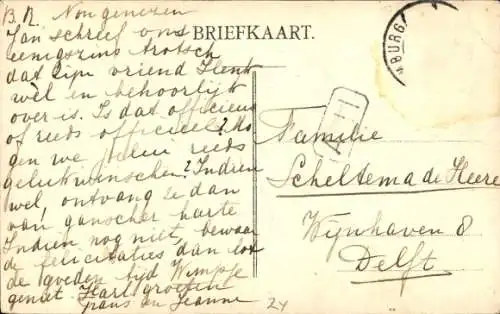 B.R. Non genezen
Jan schreef ons
eenigszins trotsch
dat zijn vriend Henk
wèl en behoorlijk
over is. Is dat officieus
of reeds officieel? Mo
gen we jelui reeds
gelukwenschen? Indien
wel, ontvang ze dan
van ganscher harte
Indien nog niet, bewaar
de felicitaties dan tot
de goeden tijd Wimpje
geniet. Hart. groeten
pans en Jeanne
BRIEFKAART.
BURG
A II
Familie
Scheltema de Heere
Wijnhaven 8
Delft
24